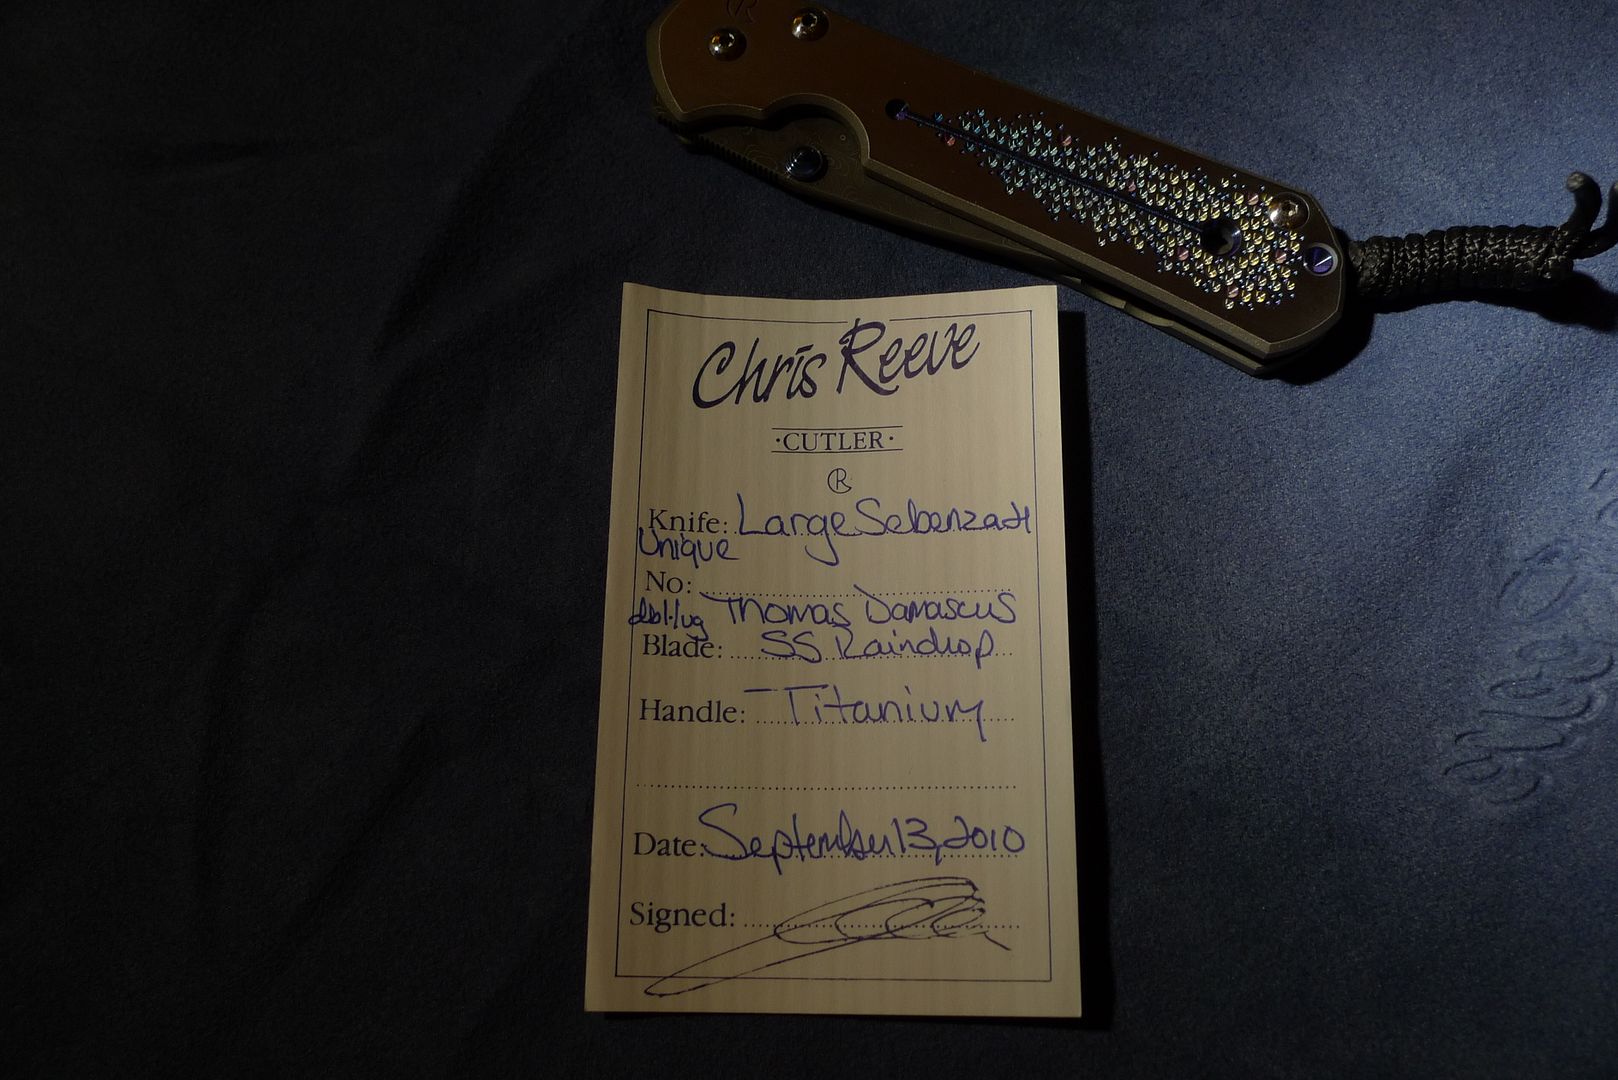 Chris Reeve
·CUTLER·
R
Knife: Large Sebenza 21
Unique
No:
dbl. lug Thomas Damascus
Blade: SS Raindrop
Handle: Titanium
Date: September 13, 2010
Signed: